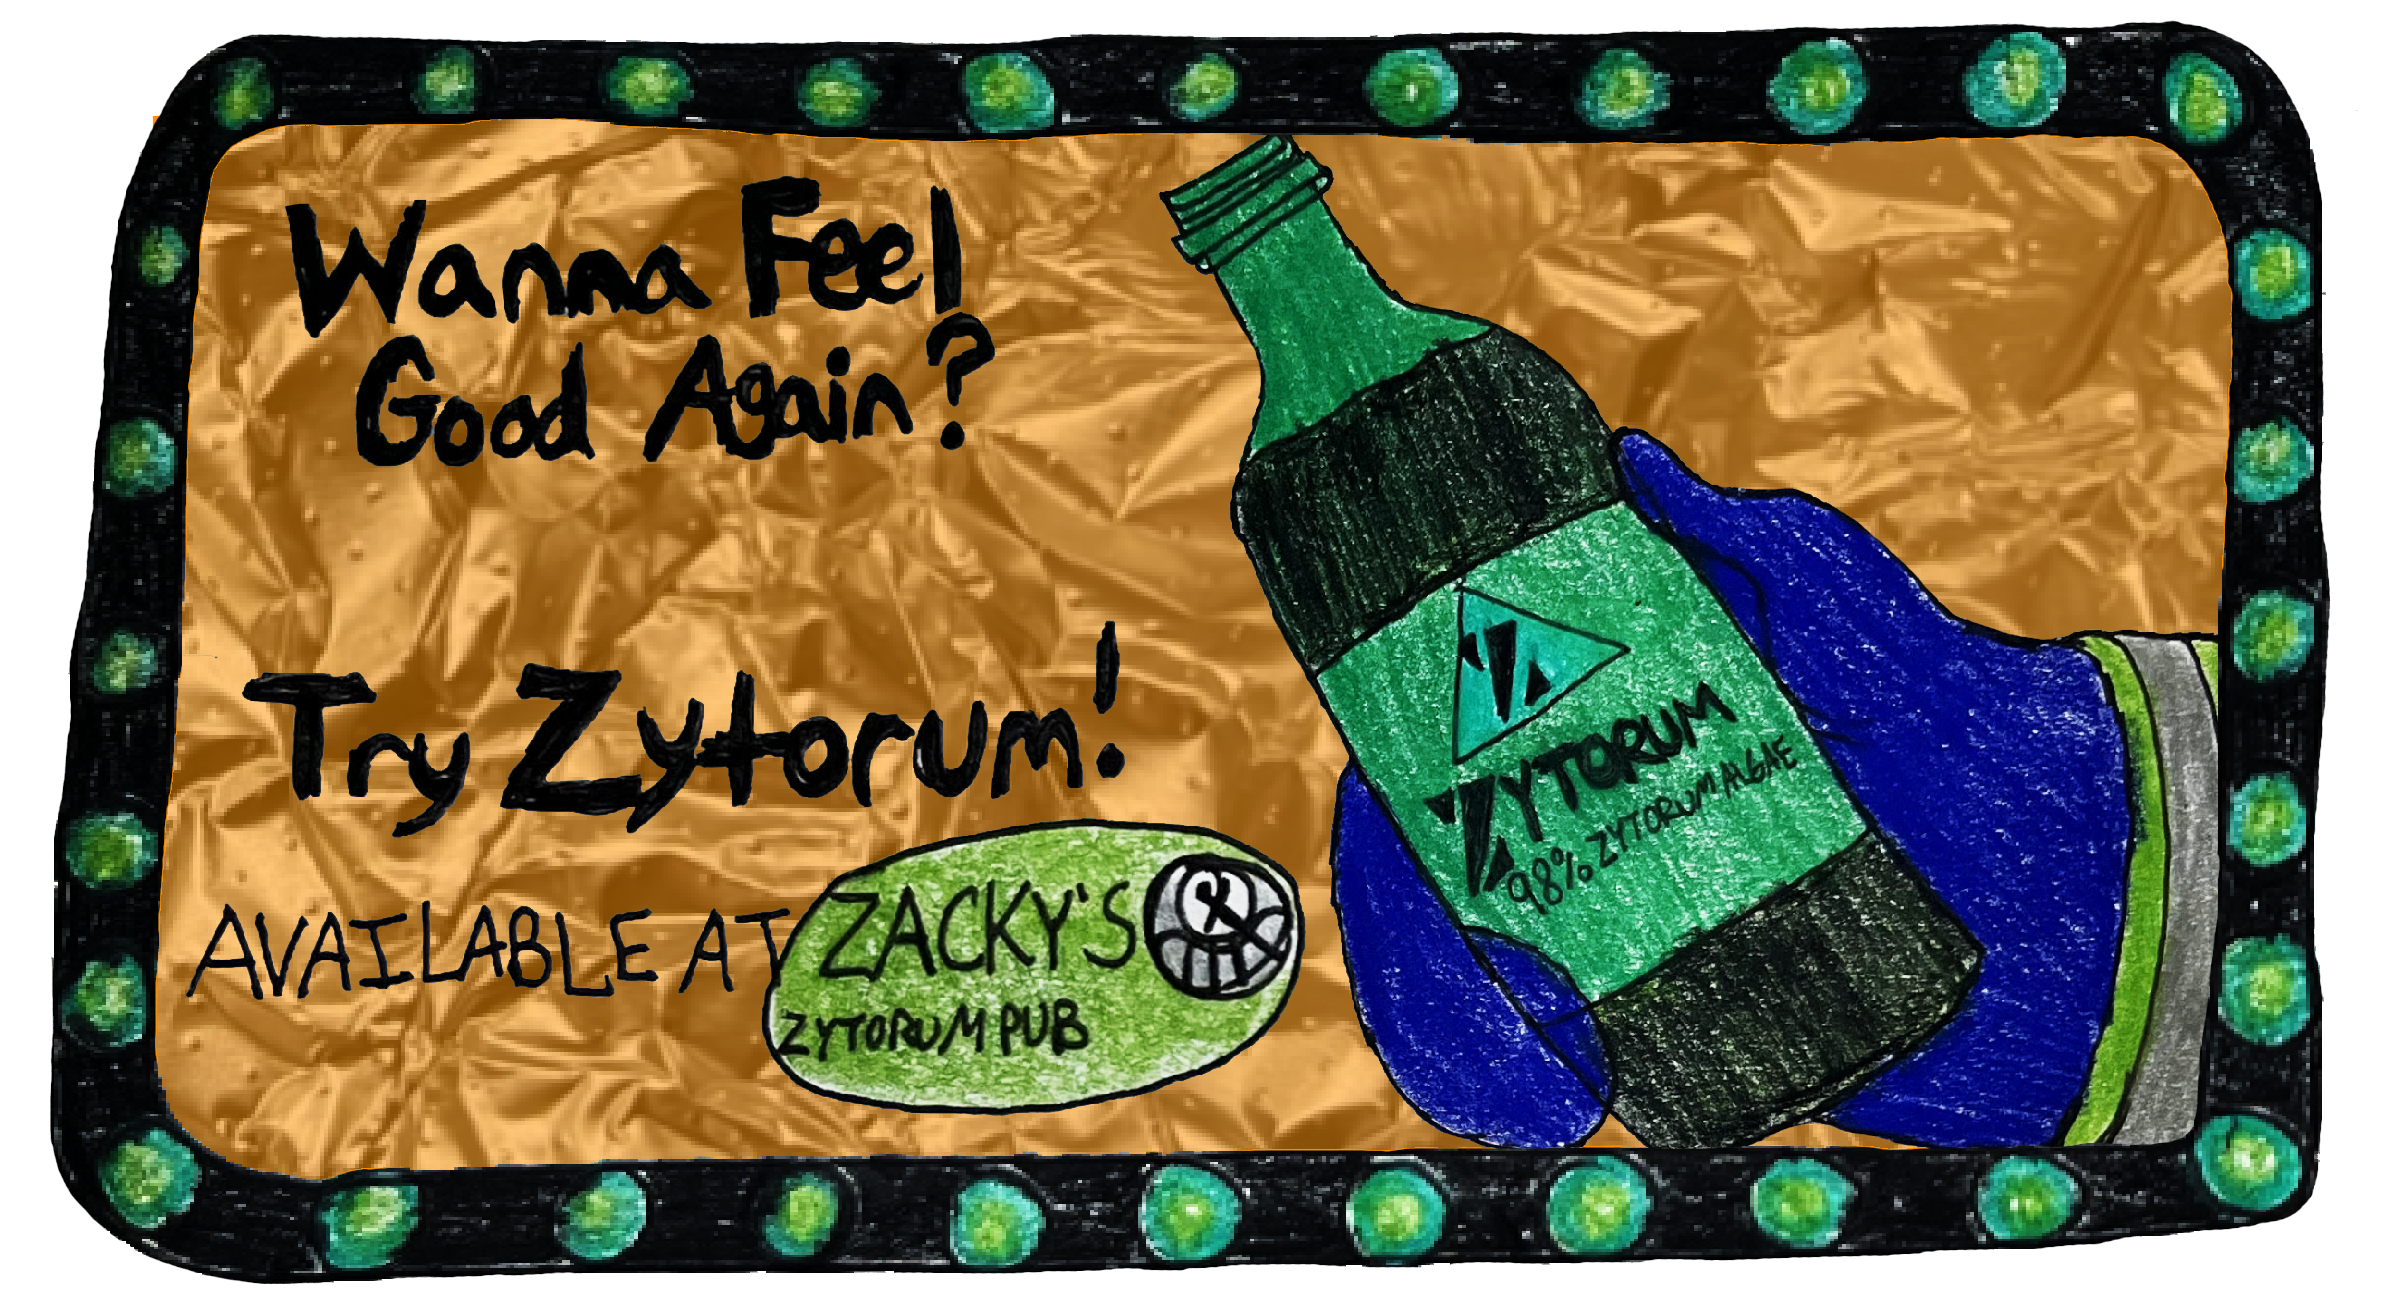 Wanna Feel
Good Again?
Try Zytorum!
AVAILABLE AT
ZACKY'S
ZYTORUM PUB
Z
ZYTORUM
98% ZYTORUM ALGAE